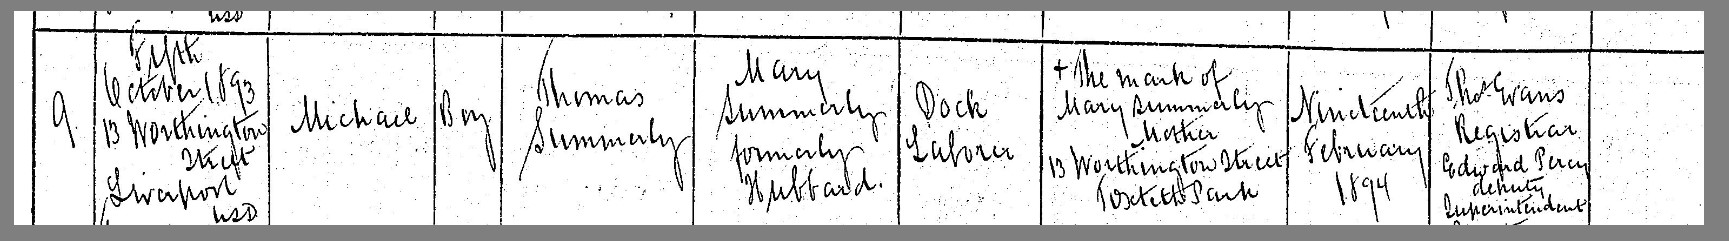 USD
9
Fifth
October 1893
13 Worthington
Street
Liverpool
USD
Michael
Boy
Thomas
Summerly
Mary
Summerly
formerly
Hubbard.
Dock
Laborer
+ The mark of
Mary Summerly
Mother
13 Worthington Street
Toxteth Park
Nineteenth
February
1894
Thos. Evans
Registrar
Edward Percy
deputy
Superintendent